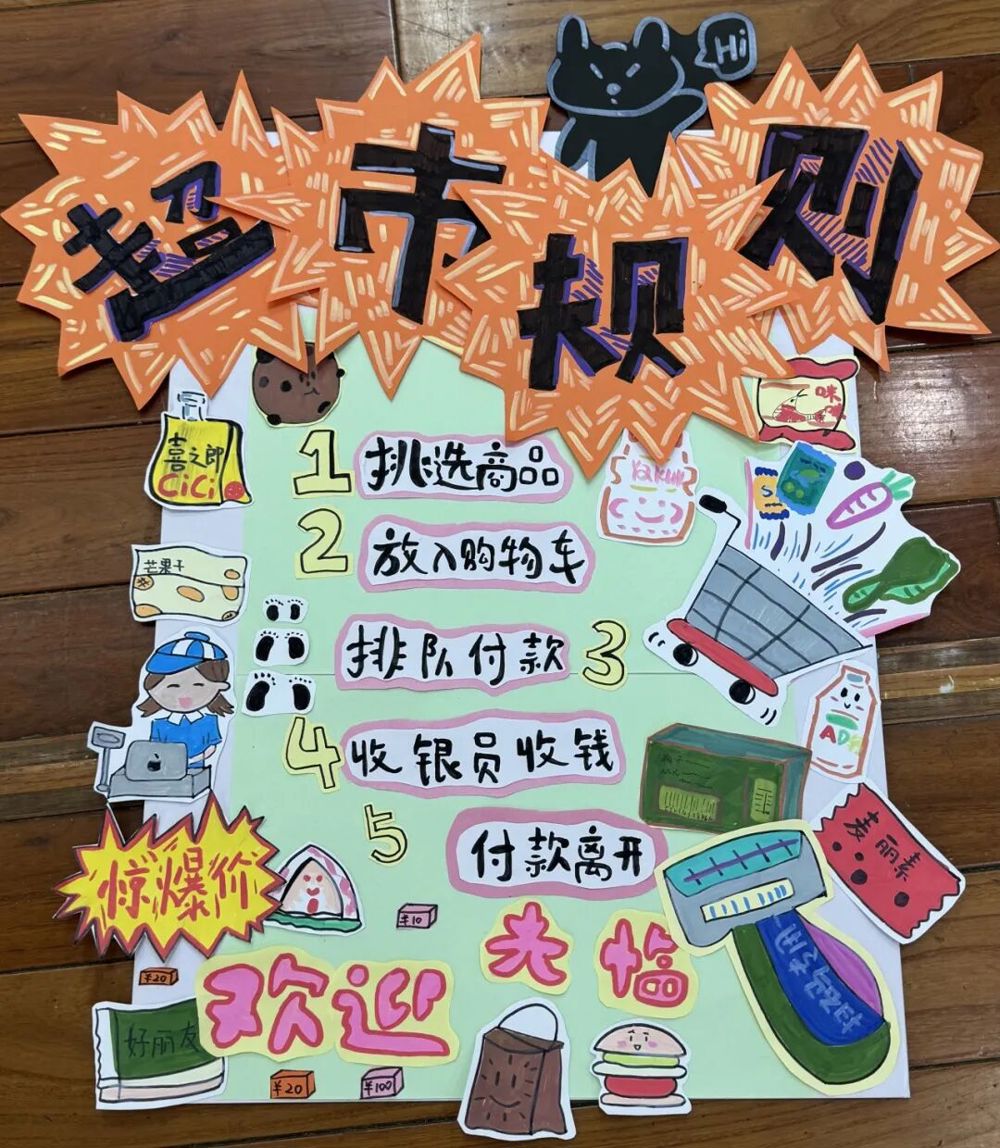 Hi
超市规则
喜之郎
CiCi
咪咪
1 挑选商品
Yakult
2 放入购物车
芒果干
排队付款 3
4 收银员收钱
AD
5
付款离开
麦丽素
惊爆价
¥10
光临
¥20
欢迎
好丽友
¥20
¥100